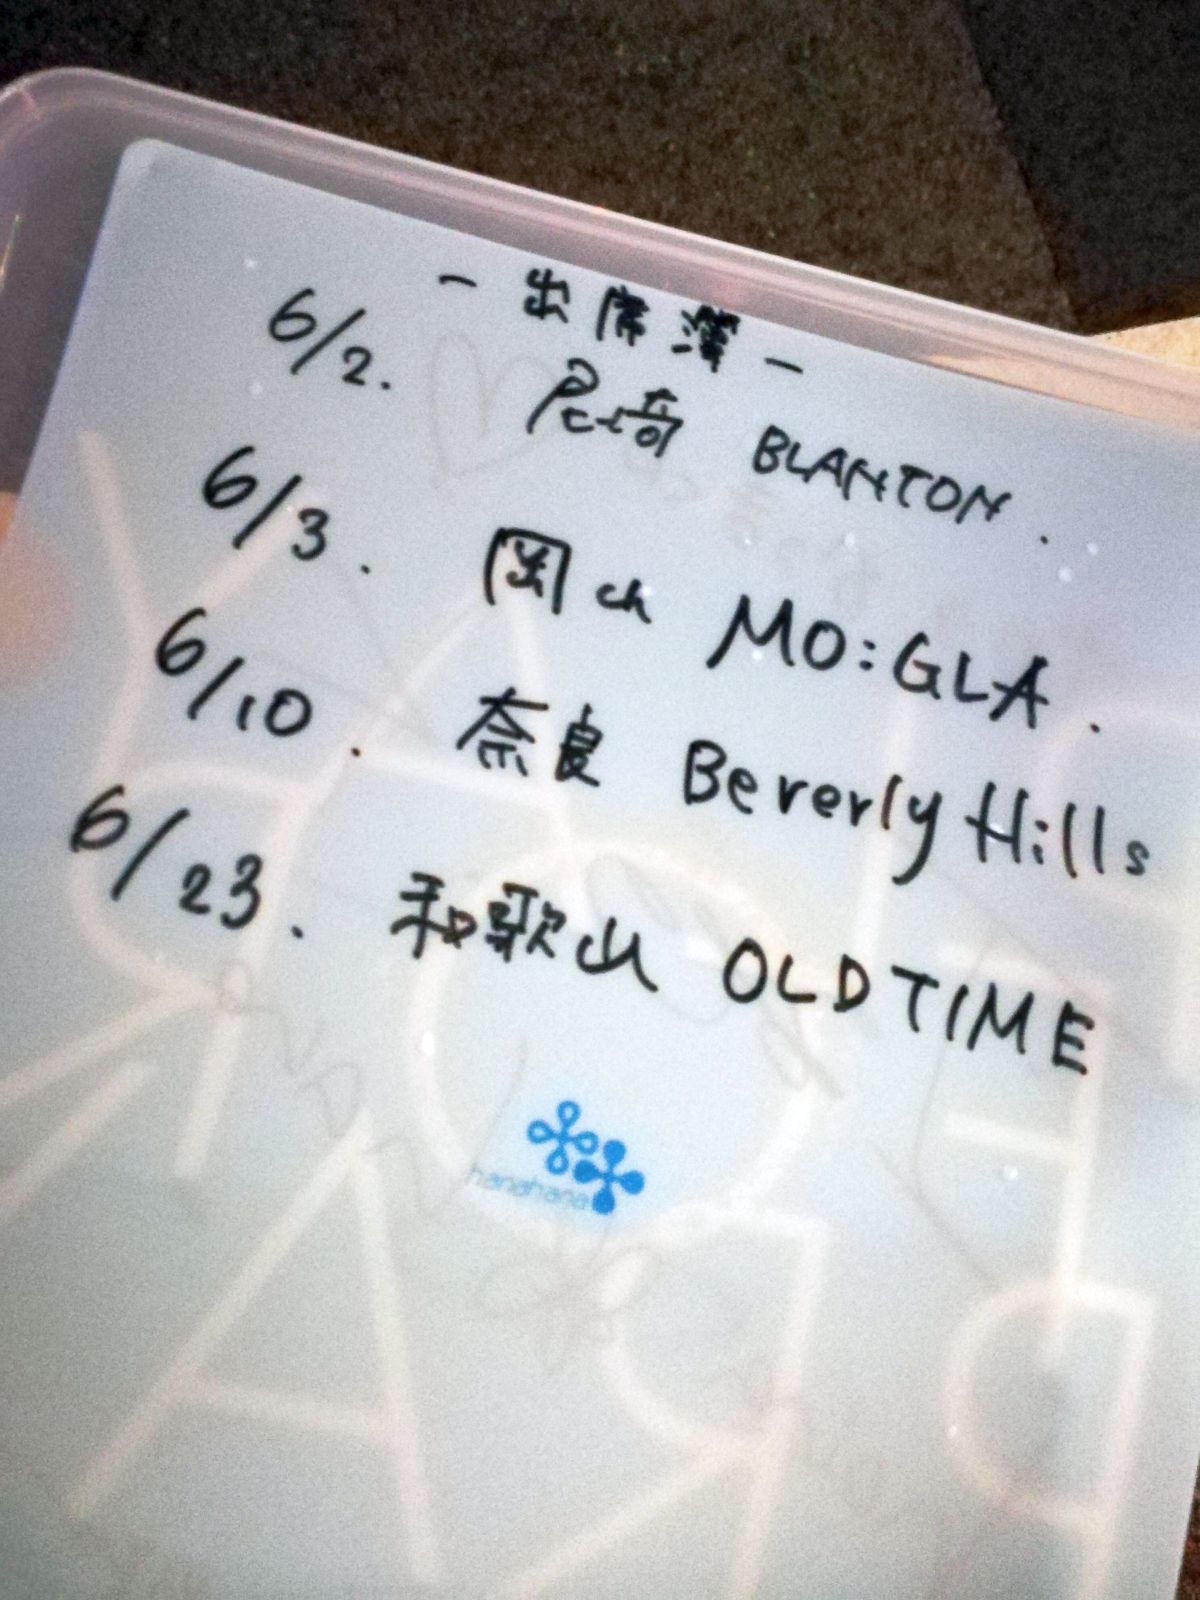 - 出席簿 -
6/2. 尼崎 BLANTON.
6/3. 岡ch MO:GLA.
6/10. 奈良 Beverly Hills
6/23. 和歌山 OLDTIME
hanahana